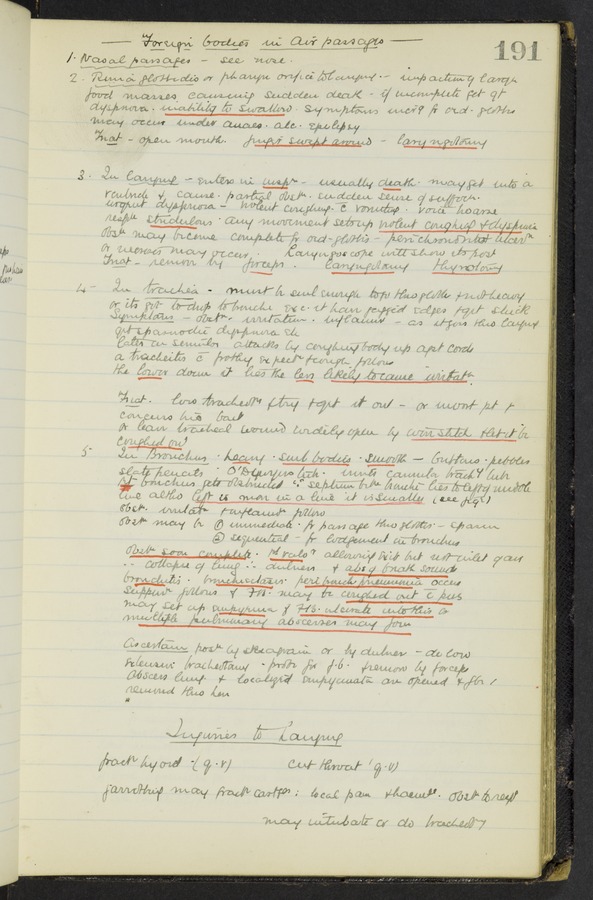 191
Foreign bodies in Air passages
1. Nasal passages - see nose.
2. Rima glottidis or pharyn. orifice to larynx - impacting large
food masses causing sudden death - if incomplete get gt
dyspnoea. inability to swallow. Symptoms
may occur under anaes. alc. epilepsy
Treat - open mouth. finger swept around - laryngotomy
3. In larynx - enters in insp - usually death. may get into a
ventricle & cause partial obstn. sudden sense of suffocn.
urgent dyspnoea - violent coughing & vomiting. voice hoarse
respn stridulous. any movement sets up violent coughing & dyspnoea
obstn may become complete fr oed - glottis - perichondritis
or necrosis may occur. Laryngoscope will show its post
Treat - remove by forceps. laryngotomy thyrotomy
4. In trachea - must be small enough to go thro glottis & not heavy
or its got to drop to bronchi exc. it has jagged edges & get stuck
Symptoms - obstn. irritation. inflamn - as it goes thro larynx
get spasmodic dyspnoea etc
later on similar attacks by coughing body up agst cords
a tracheitis c̄ frothy expect & cough follows
the lower down it lies the less likely to cause irritatn.
Treat. low tracheotomy & try & get it out - or invert pt &
concuss his back
or leave tracheal wound widely open by wire stitch & let it be
coughed out
5 In Bronchus. heavy. small bodies. smooth - buttons. pebbles
slate pencils. O'Dwyers tube. inner cannula trachy tube
Rt bronchus gets obstructed ∵ septum btn bronchi lies to left of middle
line altho left is more in a line it is smaller (see fig)
obstn. irritatn & inflamn follows
obstn may be ① immediate - fr passage thro glottis - spasm
② sequential - fr lodgement in bronchus
obstn soon complete. allowing exit but not inlet of air
∴ collapse of lung ∴ dulness & abs of breath sounds
bronchitis. bronchiectasis. peribronch pneumonia occurs
suppurn follows & F.b. may be coughed out c̄ pus
may set up empyema & F.b. ulcerate into this or
multiple pulmonary abscesses may form
Ascertain post by skiagram or by dulness - do low
extensive tracheotomy - probe for f.b. & remove by forceps
Abscess lung & localized empyemata are opened & fb
removed thro here
Injuries to Larynx
fractr hyoid - (q.v) cut throat (q.v)
garrotting may fractr cartges: local pain & haem. obstn to resp
may intubate or do tracheoty